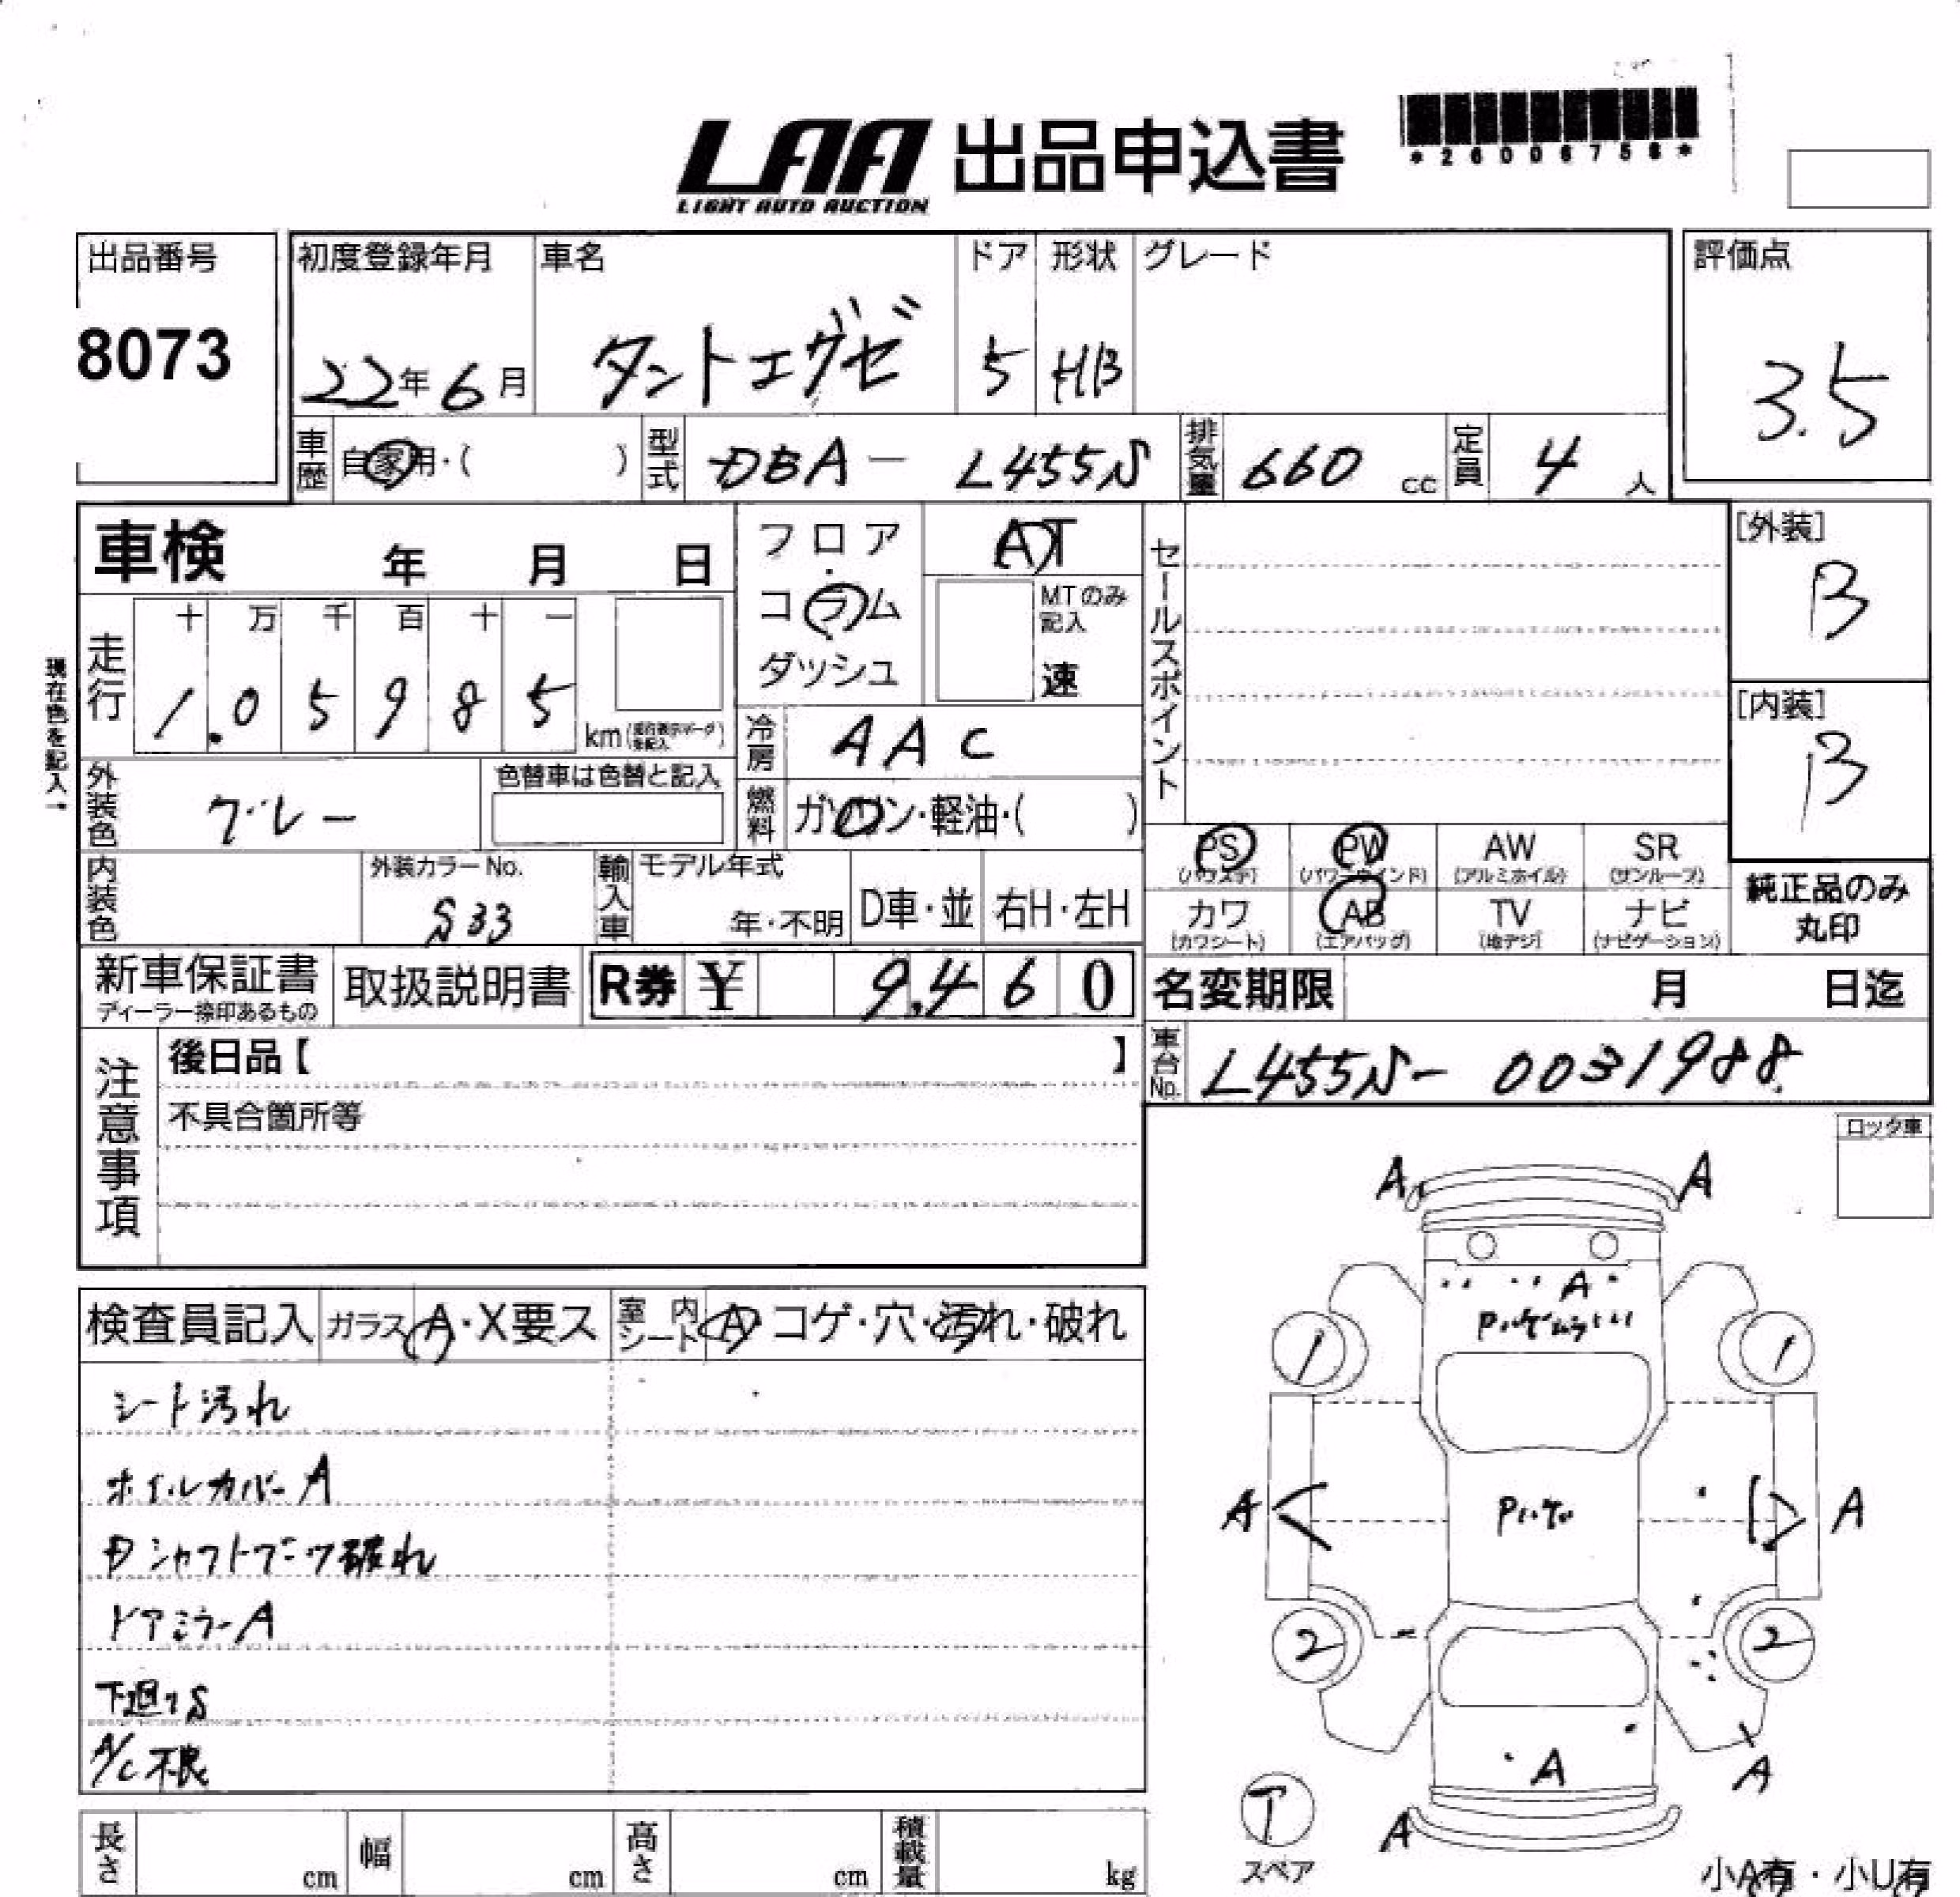 LAA 出品申込書
LIGHT AUTO AUCTION
*26006758*
出品番号
8073
初度登録年月
22年6月
車名
タントエグゼ
ドア
5
形状
HB
グレード
評価点
3.5
車歴
自家用・( )
型式
DBA- L455S
排気量
660 cc
定員
4 人
車検 年 月 日
フロア
コラム
ダッシュ
AT
MTのみ
記入
速
セールスポイント
[外装]
B
[内装]
B
現在色を記入→
走行
十 万 千 百 十 一
1.0 5 9 8 5
km
冷房
AAC
外装色
グレー
色替車は色替と記入
燃料
ガソリン・軽油・( )
PS
(パワステ)
PW
(パワーウインド)
AW
(アルミホイル)
SR
(サンルーフ)
カワ
(カワシート)
AB
(エアバッグ)
TV
(地デジ)
ナビ
(ナビゲーション)
純正品のみ
丸印
内装色
外装カラーNo.
S33
輸入車
モデル年式
年・不明
D車・並
右H・左H
新車保証書
ディーラー捺印あるもの
取扱説明書
R券 ¥ 9,460
名変期限 月 日迄
車台No.
L455S- 0031988
注意事項
後日品【 】
不具合箇所等
ロッタ車
検査員記入
ガラス A・X要ス
室内シート A・コゲ・穴・汚れ・破れ
シート汚れ
ホイルカバーA
Dシャフトブーツ破れ
ドアミラーA
下廻りS
A/C不良
A
A
A
1
1
A
A
2
2
A
A
T
スペア
A
小A有・小U有
長さ cm
幅 cm
高さ cm
積載量 kg